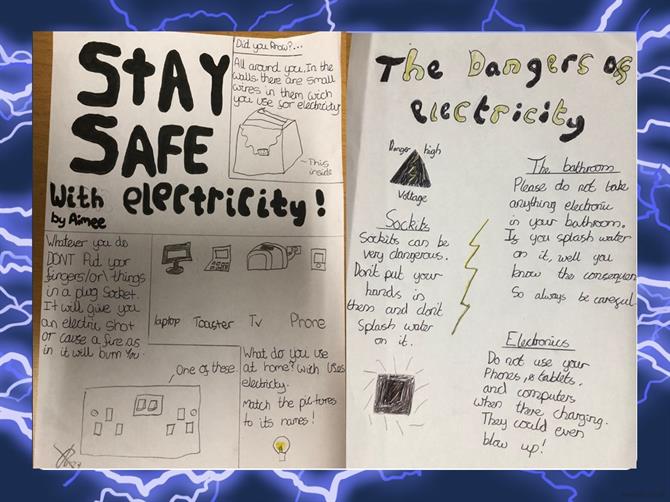 STAY
SAFE
With electricity!
by Aimee
Did you know?...
All around you, In the
walls there are small
wires in them wich
you use for electricity
This
inside
Whatever you do
DONT Put your
fingers/or\things
in a plug socket.
It will give you
an electric shot
or cause a fire as
in it will burn you.
laptop Toaster Tv Phone
One of these.
What do you use
at home? with uses
electricity.
Match the pictures
to its names!
The Dangers of
electricity
Danger high
Voltage
Sockits
Sockits can be
very dangerous.
Don't put your
hands in
them and don't
splash water
on it.
The bathroom
Please do not take
anything electronic
in your bathroom.
If you splash water
on it, well you
know the consequen
So always be careful
Electronics
Do not use your
Phones, tablets,
and computers
when there charging.
They could even
blow up!